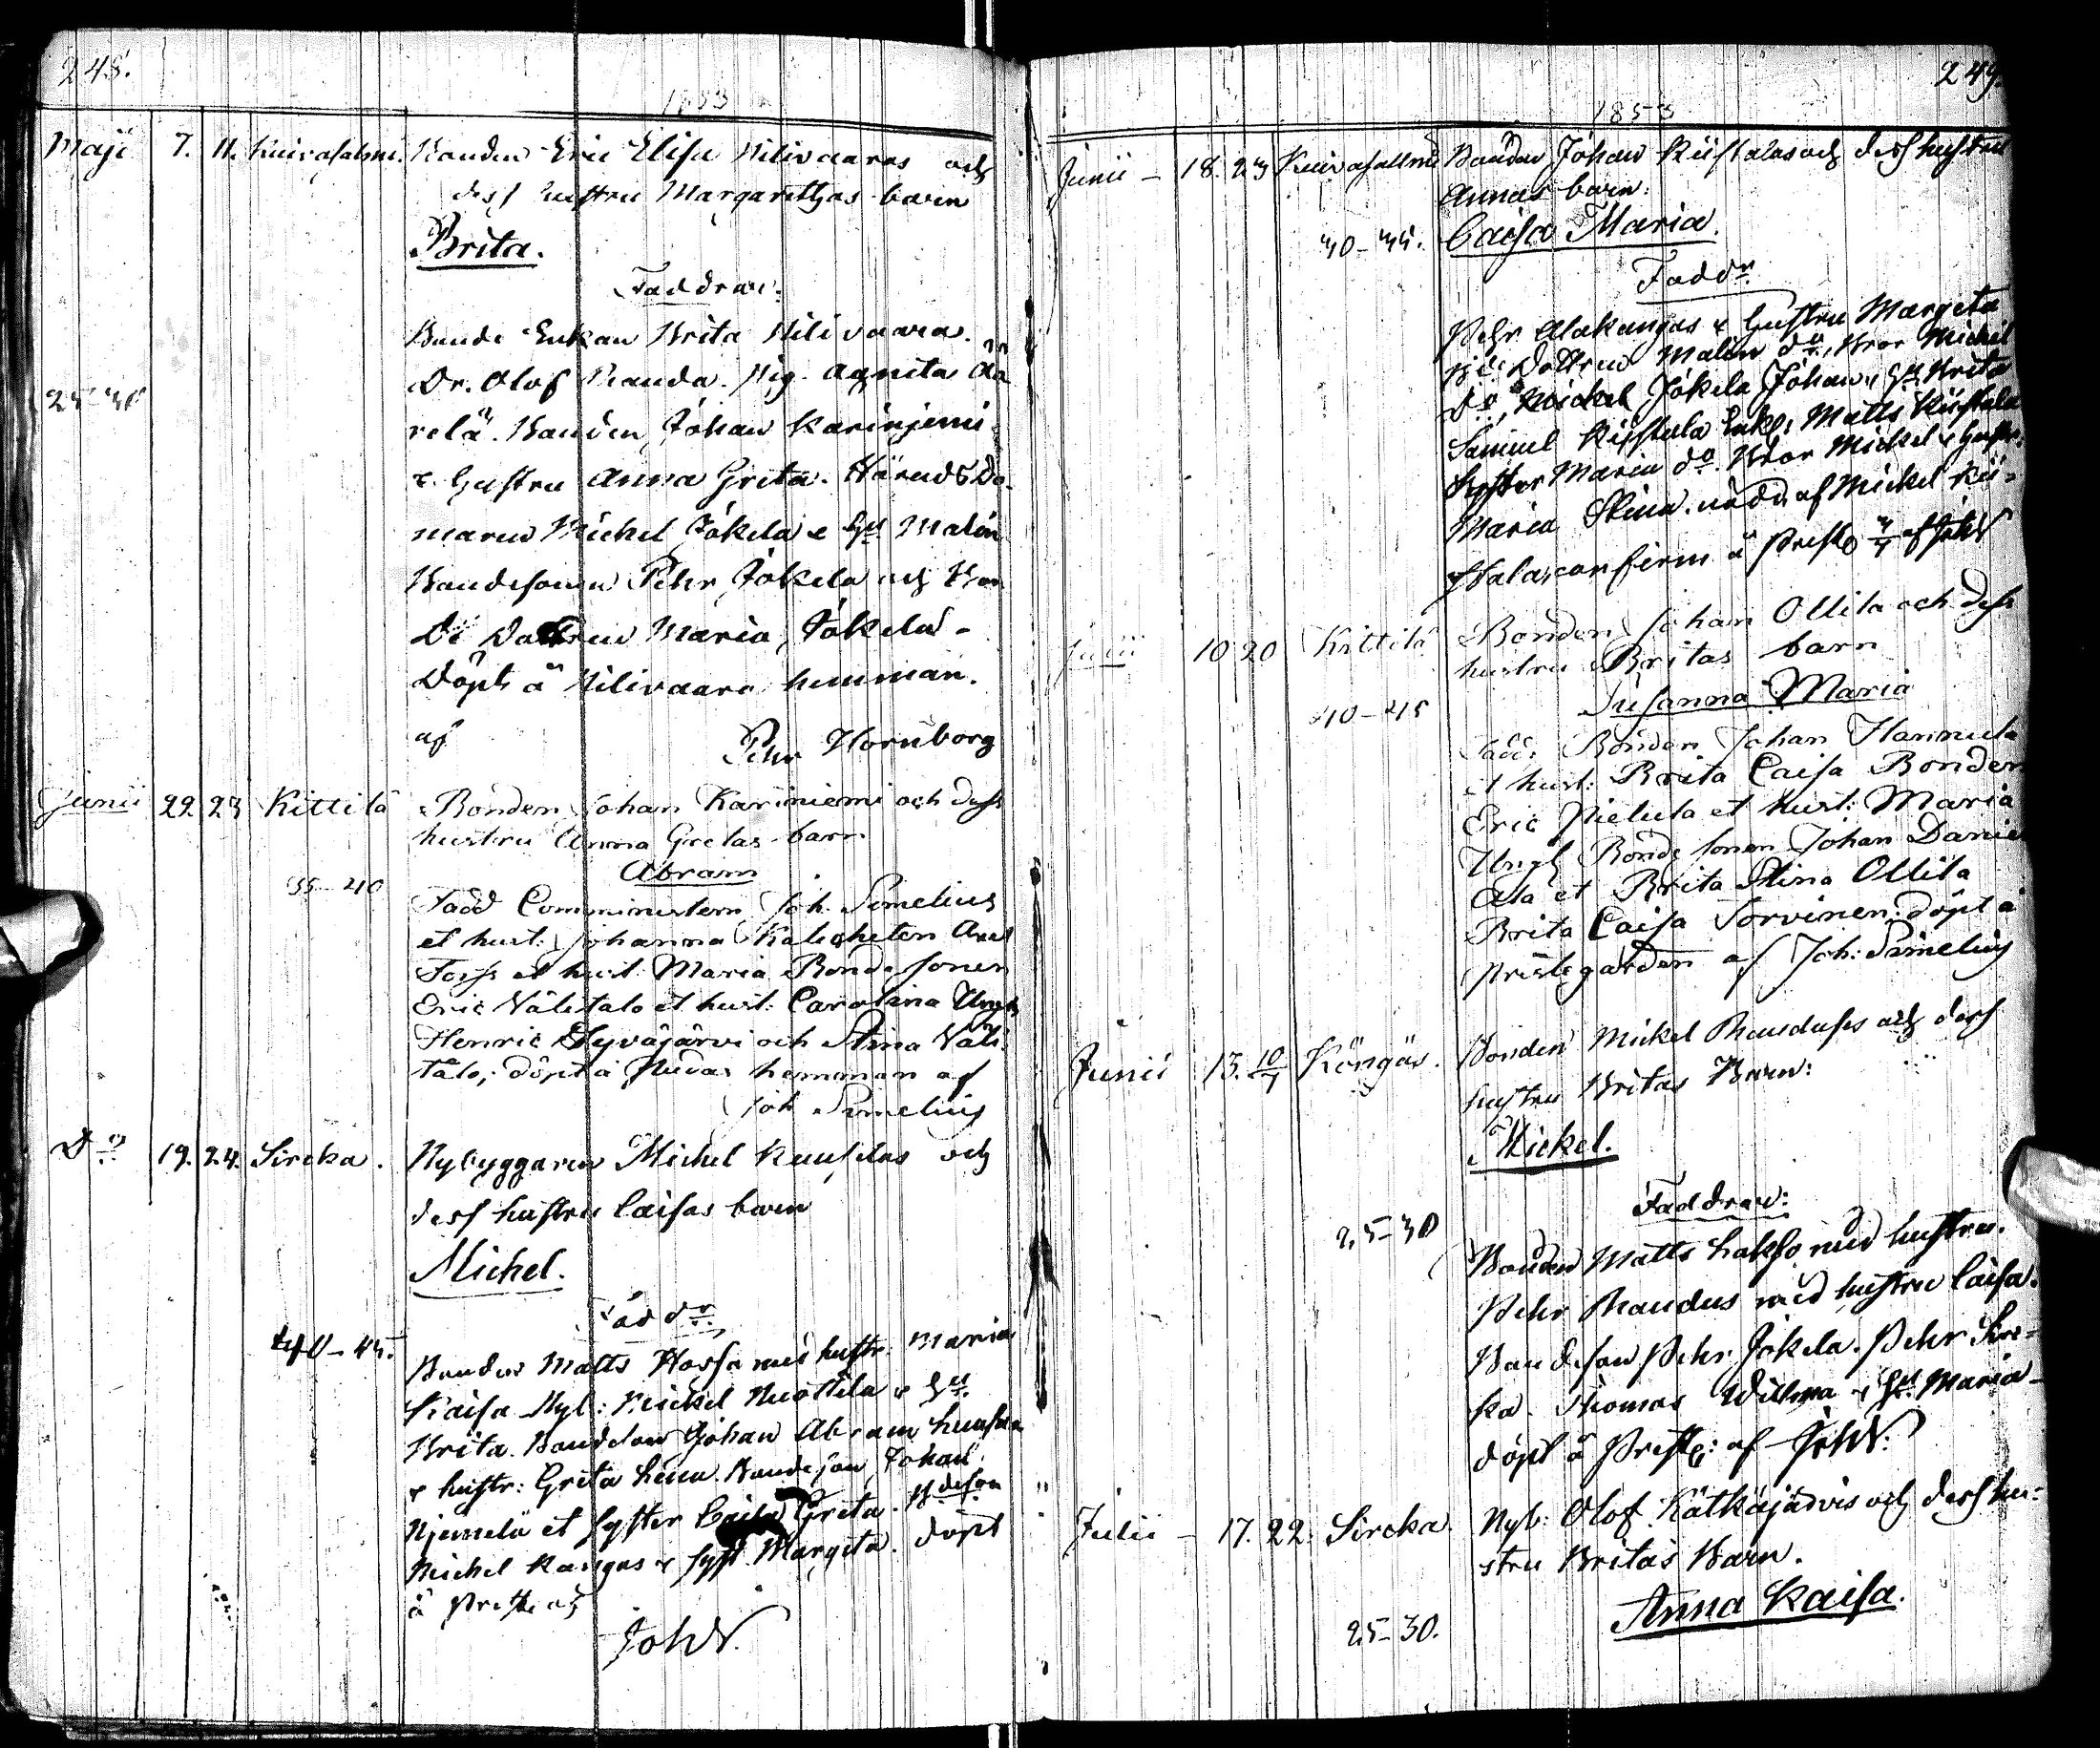 248.
1853
Maji 7. 11. Kuivasalmi. Bonden Eric Elisa Kilivaaras och
dess hustru Margarethas barn
Brita.
Faddrar:
Bonde Enkan Brita Kilivaara.
25-30
Dr. Olof Randa. Pig. Agnita Aa
relä. Bonden Johan Kariniemi
& hustru Anna Greta. Häradsdo-
maren Michel Jokela & hu Malin
Bondesonen Pehr Jokela och Bon
de Dottren Maria Jokela -
Döpt å Kilivaara hemman.
af Pehr Hornborg
Junii 22 23 Kittilä Bonden Johan Kariniemi och dess
hustru Anna Gretas barn
Abram
35-40
Fadd Comministern Joh. Simelius
et hust: Johanna Kateketen
Forss et hust Maria Bonde sonen
Eric Välitalo et hust: Carolina Ungk
Henric Hyväjärvi och Stina Väli
talo; döpt å hemman af
Joh Simelius
Do 19. 24. Sircka. Nybyggaren Michel Kuuselas och
dess hustru Caisas barn
Michel.
Faddr.
40-45.
Bonden Matts Hossa med hustr. Maria
Kaisa Nyb: Mickel Nuottila & hu
Brita. Bondeson Johan Abram
& hustr: Greta Lena. Bondeson Johan
Niemelä et syster Caisa Greta. Bdeson
Michel Kangas & syst. Margeta. döpt
å Prestg af
JohW.
249.
1853
Junii - 18. 23 Kuivasallmi Bonden Johan Kiistalas och dess hustru
Annas barn:
40-45. Caisa Maria.
Faddr
Pehr Alakangas & hustru Margeta
Dottren Malin do, Bror Michel
do, Michel Jokela Johan & hu Brita
Samuel Kiistala Enkl: Matts Kiistala
Syster Maria do. Bror Mickel & hustr:
Maria Stina. nöddöpt af Mickel Kii-
stala, confirm å Prestg af JohW
Junii 10 20 Kittilä Bonden Johan Ollila och dess
hustru Britas barn
40-45 Susanna Maria
Fadd: Bonden Johan Hannula
et hust: Brita Caisa Bonden
Eric Pielula et hust: Maria
Ungk Bonde sonen Johan Daniel
Ala et Brita Stina Ollila
Brita Caisa Sorvinen; döpt å
prestegården af Joh: Simelius
Junii 13. 10/7 Köngäs. Bonden Mickel Randuss och dess
hustru Britas Barn:
Mickel.
Faddrar:
25-30
Bonden Matts Lakso med hustru.
Pehr Raudus med hustru Caisa.
Bondeson Pehr Jokela. Pehr Sir-
ka. Thomas Wilma & hu Maria -
döpt å Prestg: af JohW.
Julii - 17. 22. Sircka Nyb: Olof Kätkäjärvis och dess hu-
stru Britas Barn.
25-30. Anna Kaisa.